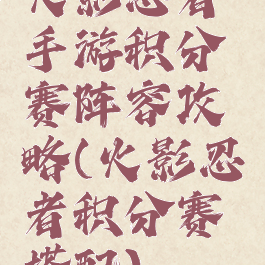 火影忍者
手游积分
赛阵容攻
略(火影忍
者积分赛
搭配)